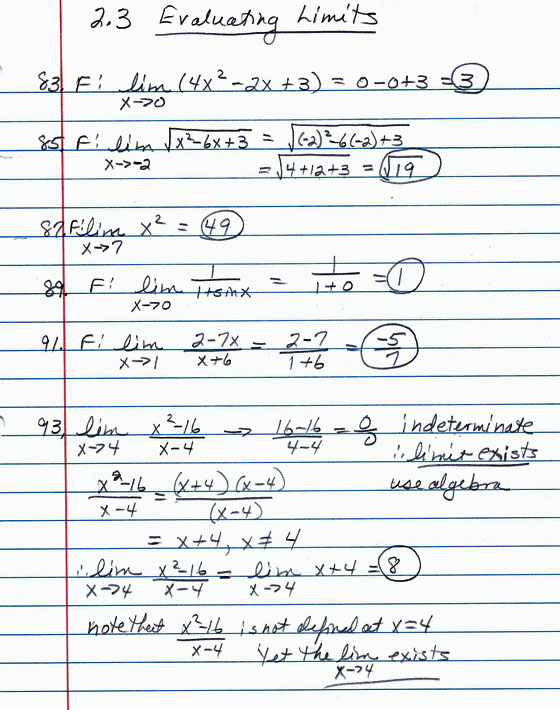 2.3 Evaluating Limits
83. F: lim x→0 (4x² - 2x + 3) = 0-0+3 = 3
85. F: lim x→-2 √(x²-6x+3) = √((-2)²-6(-2)+3)
= √(4+12+3) = √19
87. F: lim x→7 x² = 49
89. F: lim x→0 1/(1+sinx) = 1/(1+0) = 1
91. F: lim x→1 (2-7x)/(x+6) = (2-7)/(1+6) = -5/7
93. lim x→4 (x²-16)/(x-4) → (16-16)/(4-4) = 0/0 indeterminate
∴ limit exists
(x²-16)/(x-4) = (x+4)(x-4)/(x-4) use algebra
= x+4, x≠4
∴ lim x→4 (x²-16)/(x-4) = lim x→4 x+4 = 8
note that (x²-16)/(x-4) is not defined at x=4
Yet the lim x→4 exists